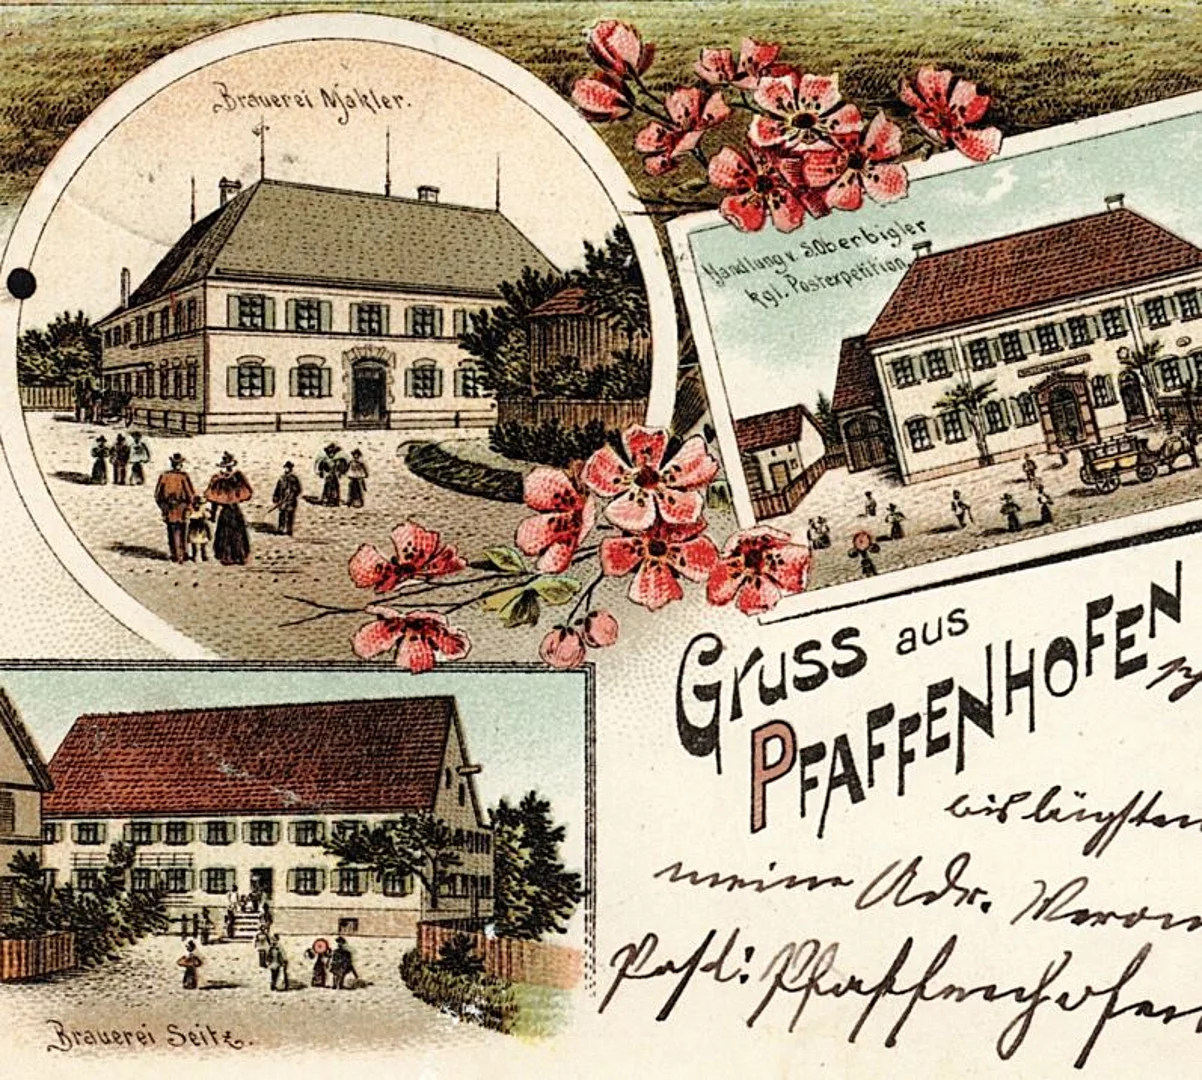 Brauerei Makler.
Handlung v. S. Oberbigler
kgl. Postexpetition.
Gruss aus
PFAFFENHOFEN
bis längsten
meine Adr.
Post: Pfaffenhofen
Brauerei Seitz.